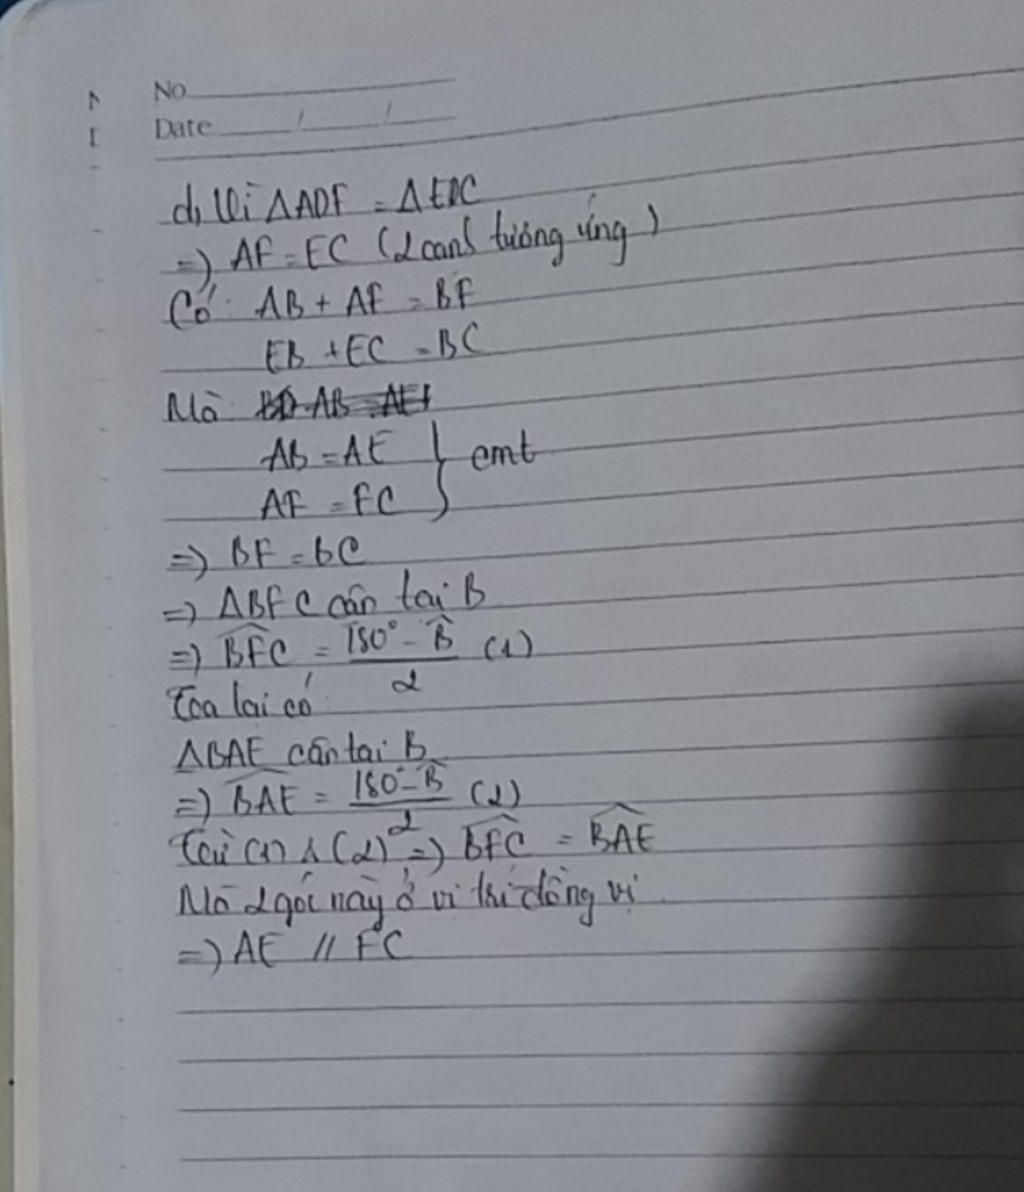 No
Date / /
d, Vì ΔADF = ΔEDC
=) AF = EC (2 canh tương ứng)
Có: AB + AF = BF
EB + EC = BC
Mà
AB = AE } cmt
AF = FC
=) BF = BC
=) ΔBFC cân tại B
=) BFC = 180° - B / 2 (1)
Ta lại có
ΔBAE cân tại B
=) BAE = 180° - B / 2 (2)
Từ (1) & (2) =) BFC = BAE
Mà 2 góc này ở vị trí đồng vị
=) AE // FC